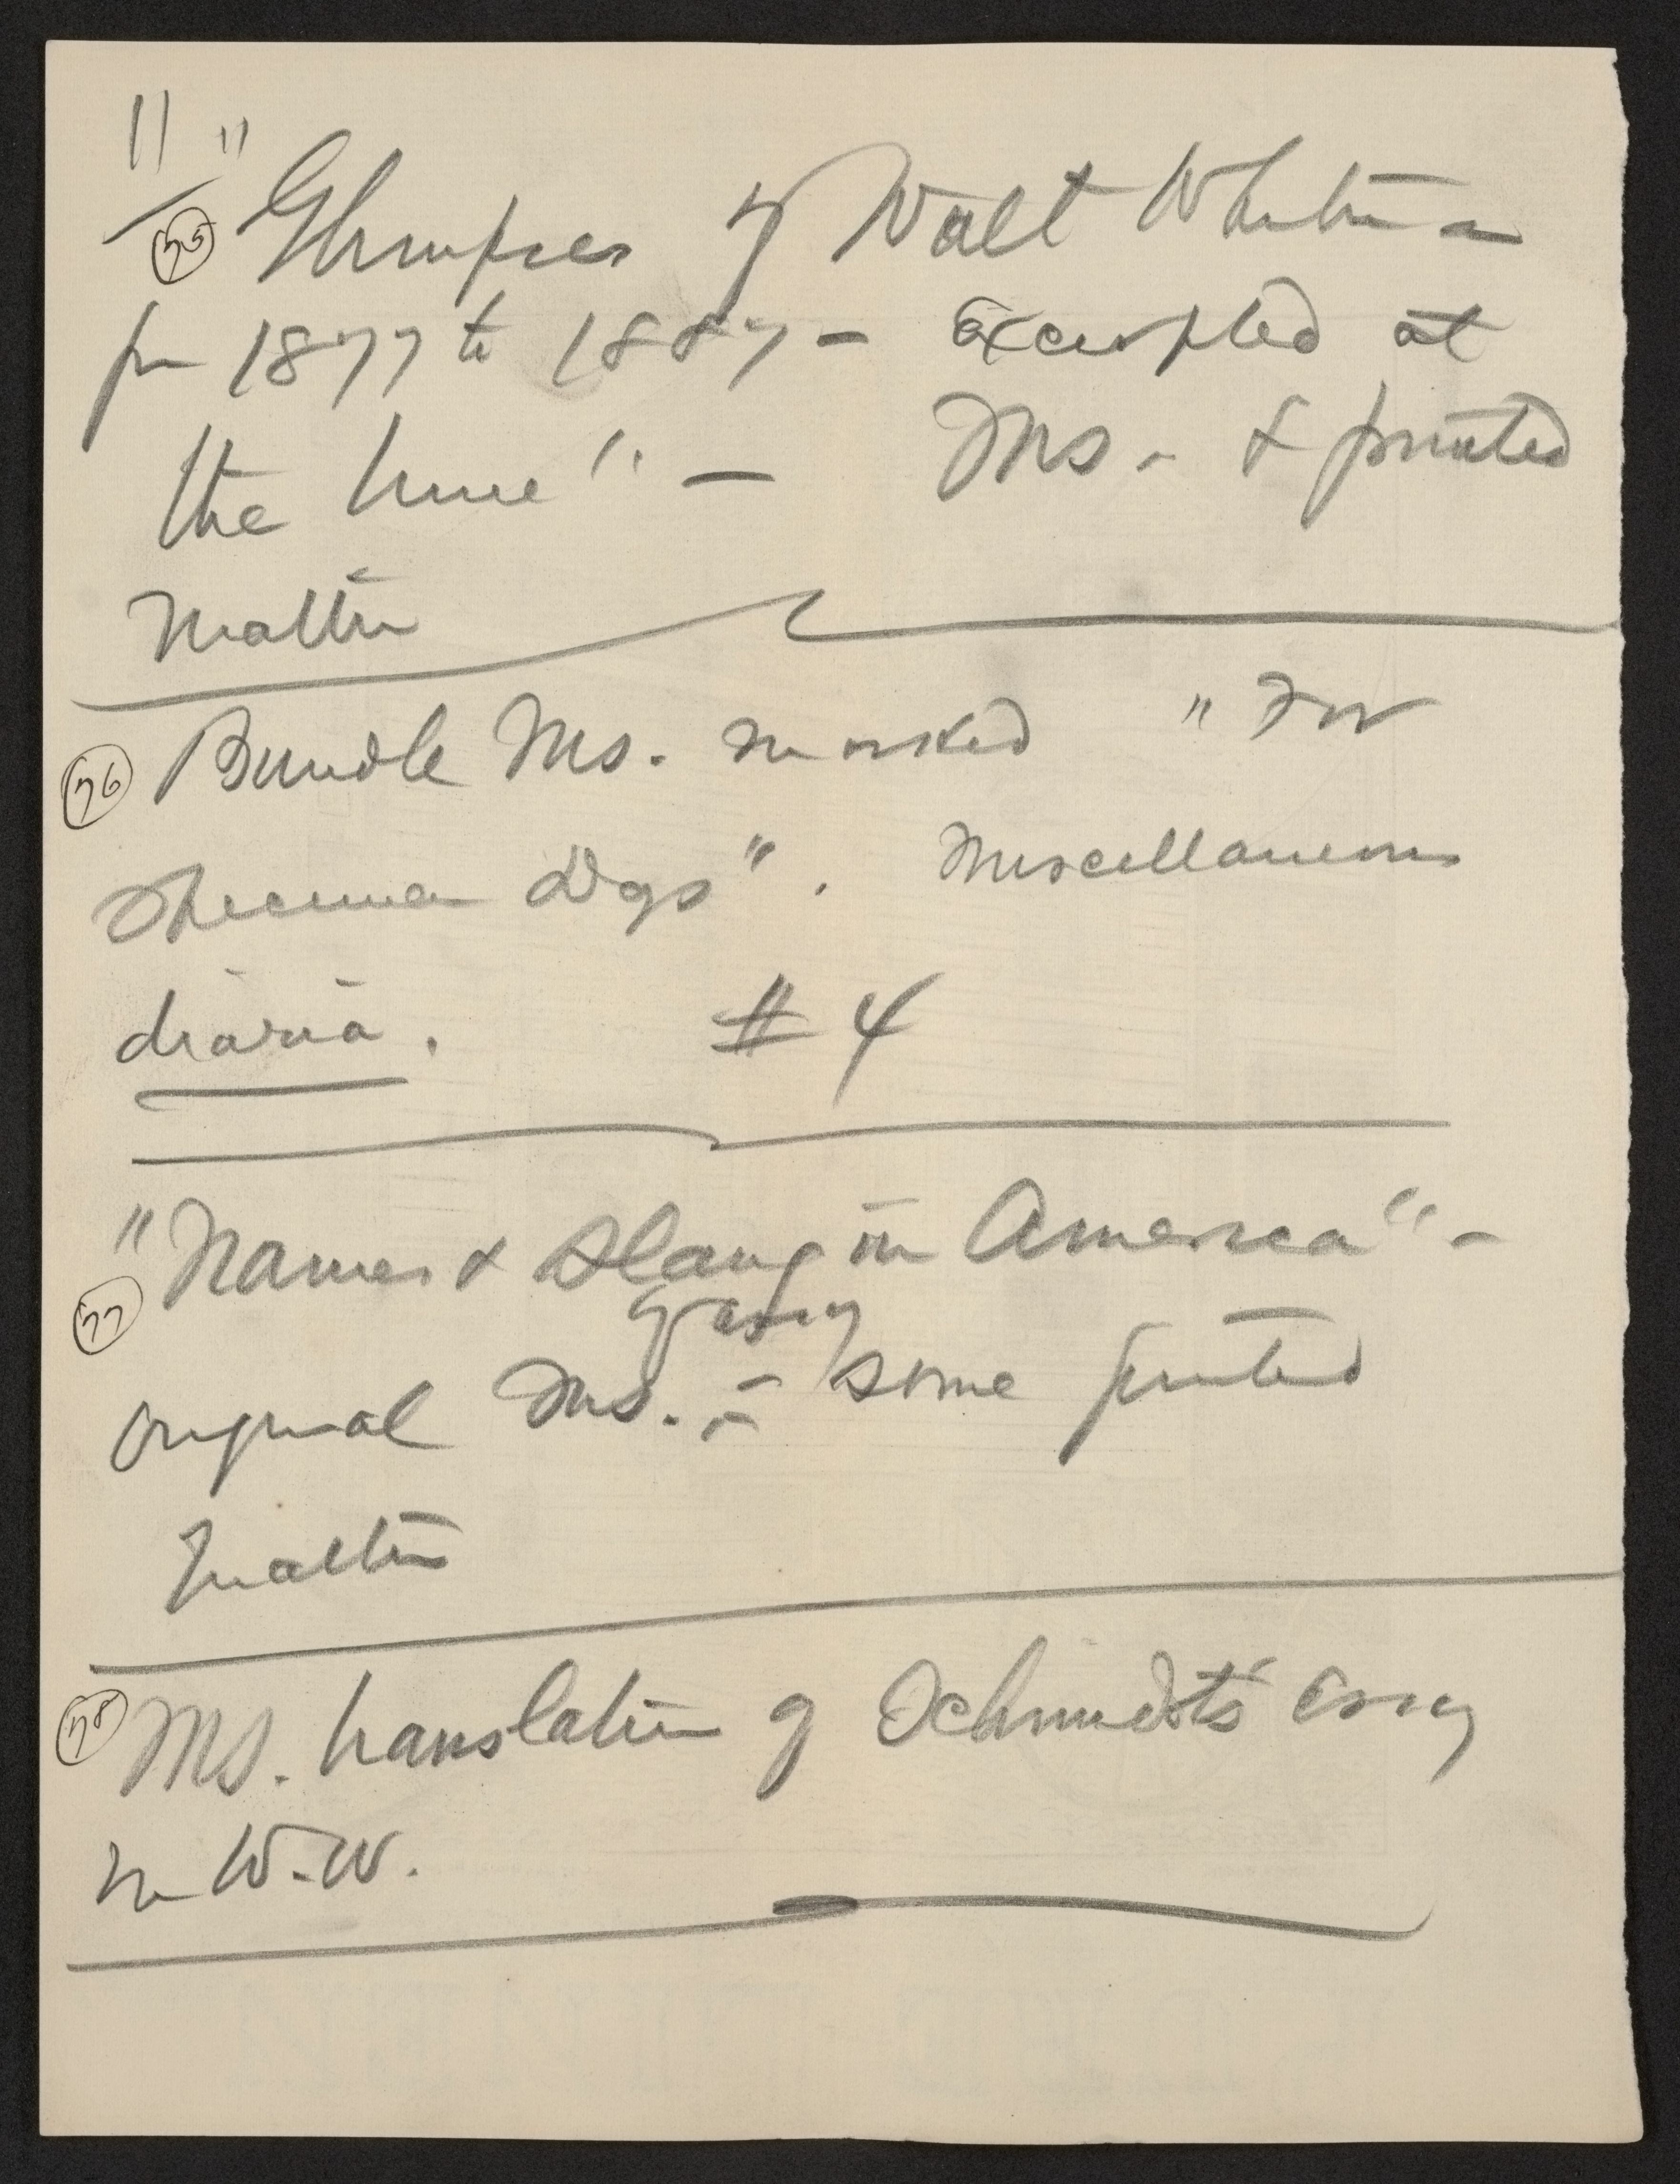 11
(75) "Glimpses of Walt Whitman
fm 1877 to 1887 — excerpted at
the time" — Ms. & printed
matter
(76) Bundle Ms. marked "For
Specimen Days". Miscellaneous
diaria. #4
"Names & Slang in America" –
(77) essay
original Ms. – some printed
matter
(78) Ms. translation of Schmidt's essay
on W.W.